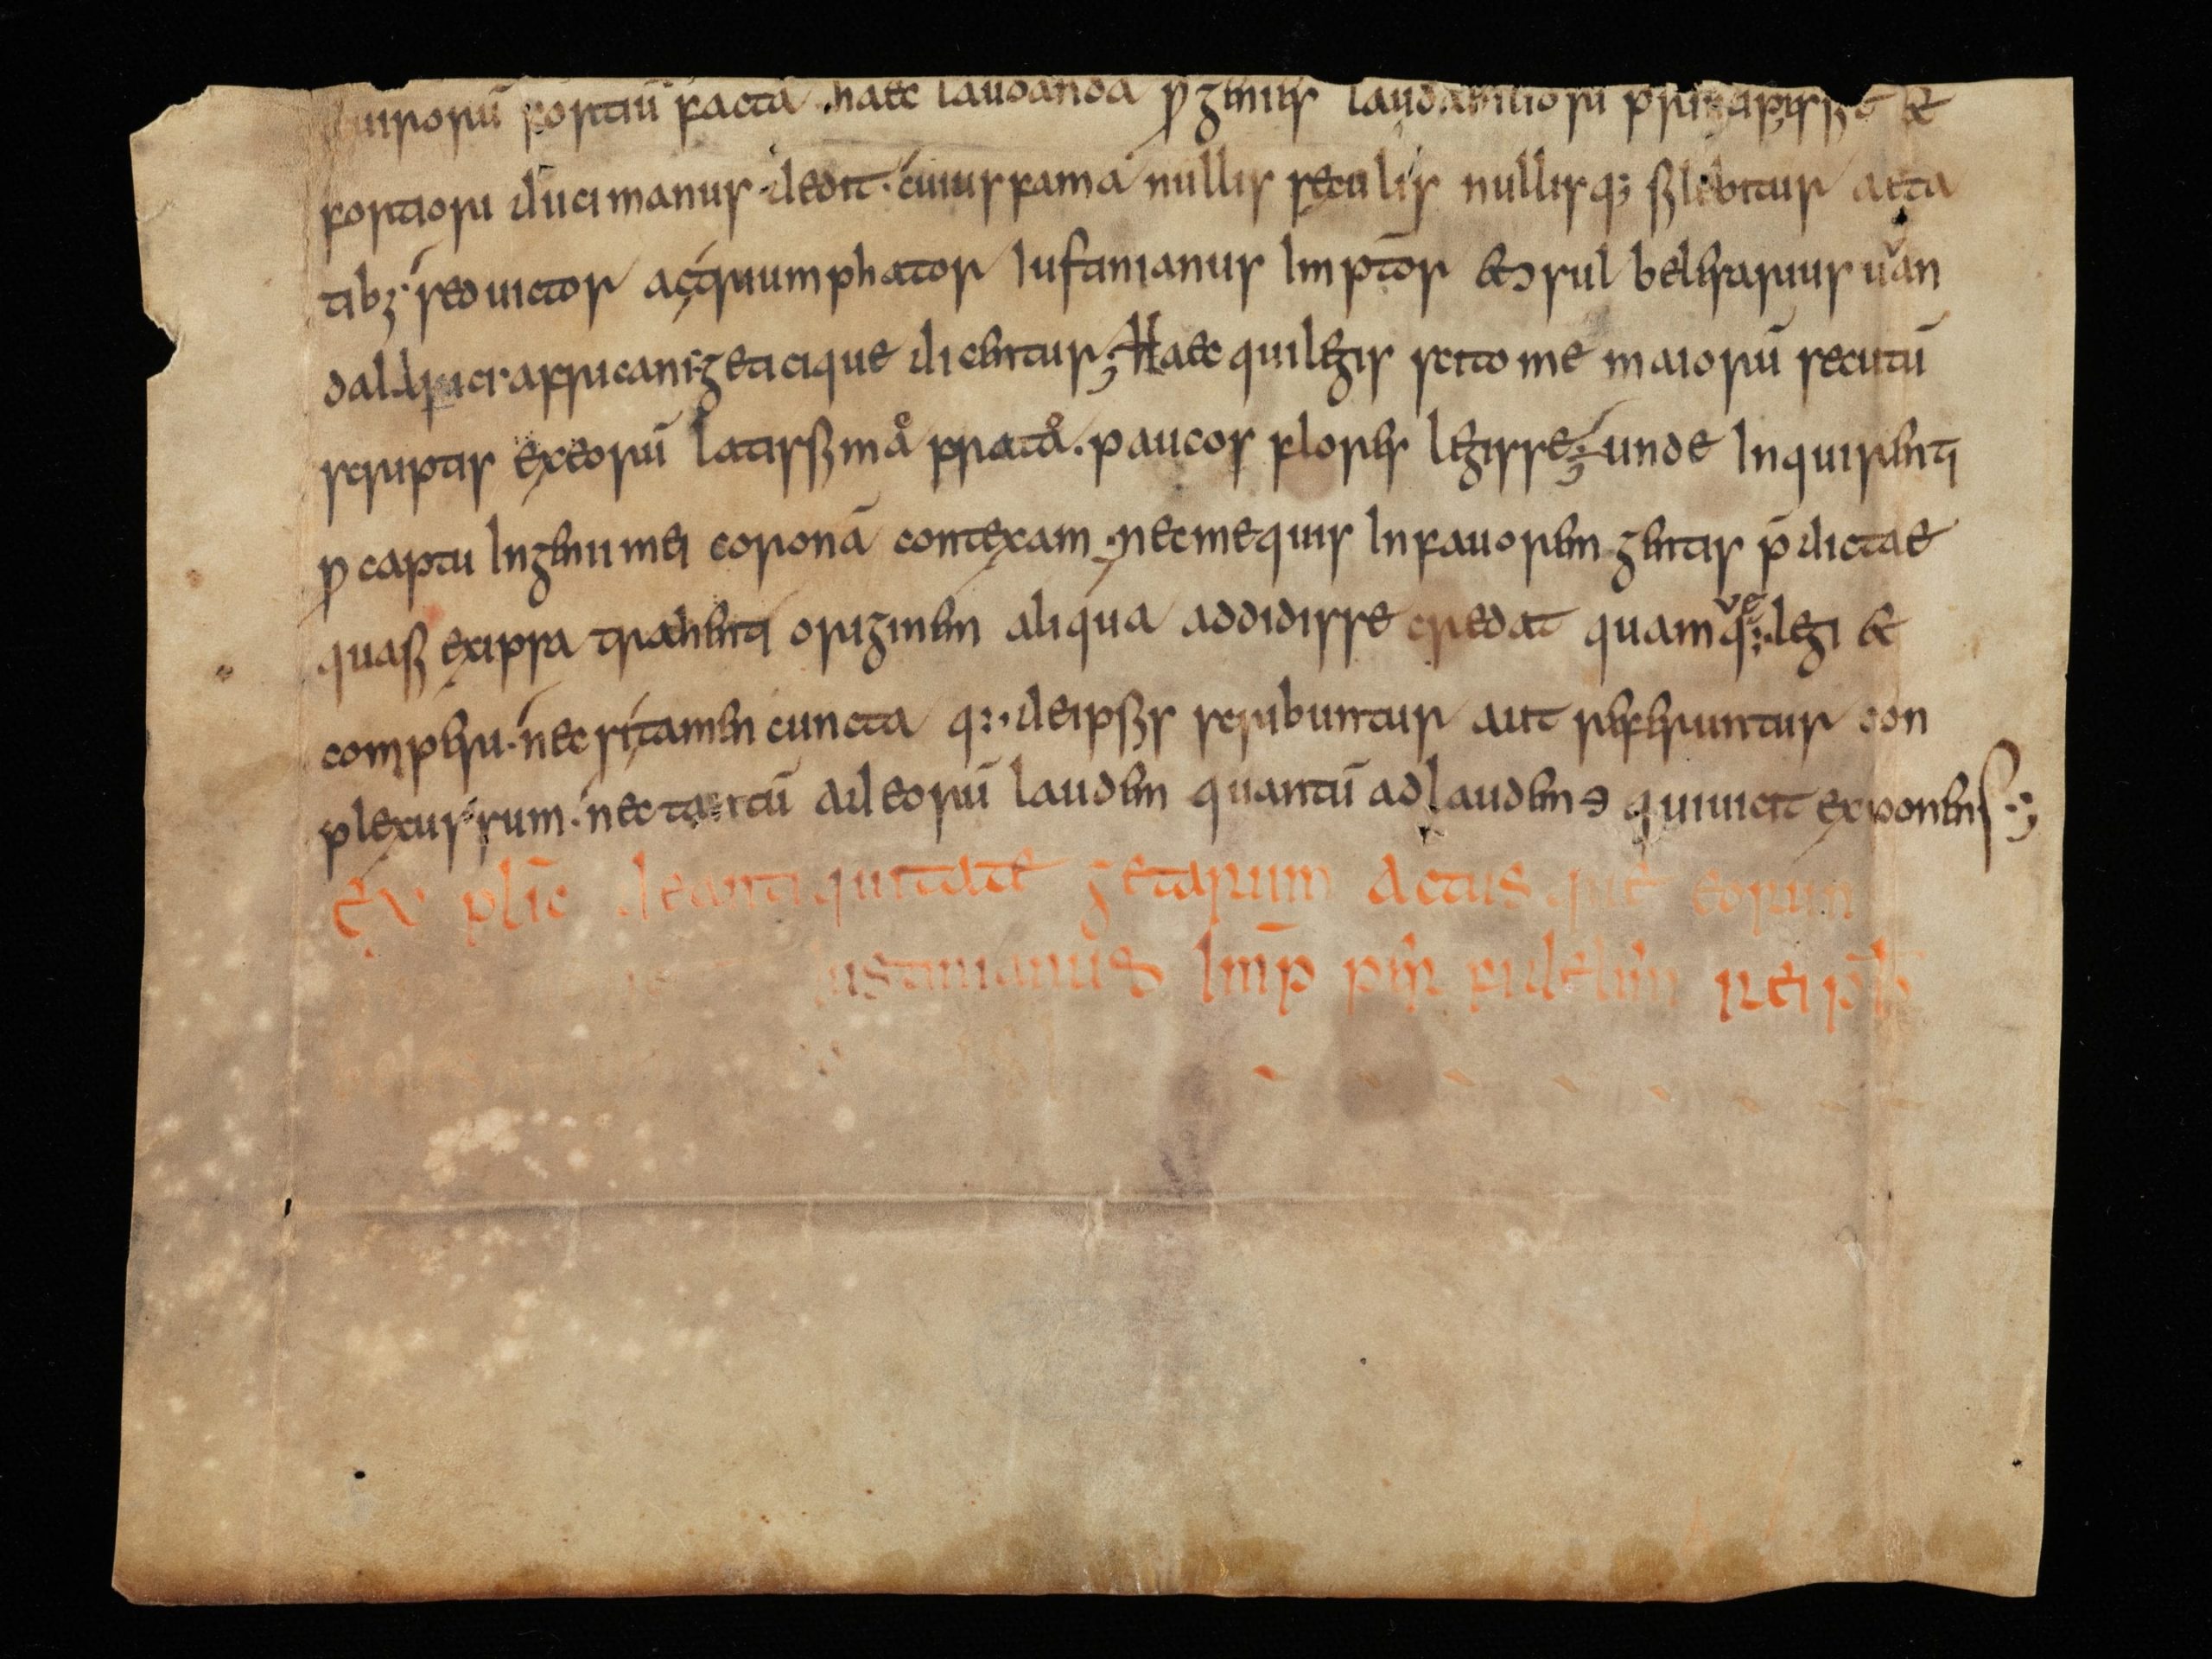 uirorū fortiū facta haec laudanda ꝓgenies laudabiliori principi ss̄ et &
fortiori duci manus dedit · cuius fama nullis seculis nullisq; silebitur aeta
tib; · sed victor ac triumphator Iustinianus Imp̄tor & ɔsul belisarius uan
dalici africani geticique dicentur; Haec qui legis scito me maiorū secutū
scriptis ex eorū latissima prata · paucos flores legisse; unde Inquirenti
ꝓ captu Ingenii mei coronā contexam · nec me quis In favorem gentis p̄dictae
quasi ex ipsa trahenti originem aliqua addidisse credat quam q; · legi &
comperi · nec si tamen cuncta q; · de ipsis scribuntur aut referuntur con
plexus sum · nec tantū ad eorū laudem quantū ad laudem ɘ qui vicit exponens ·;
Ex plic̄ de antiquitate getarum actusque eorum
iustinianus Im̄p pēr fidelem rei p̄b